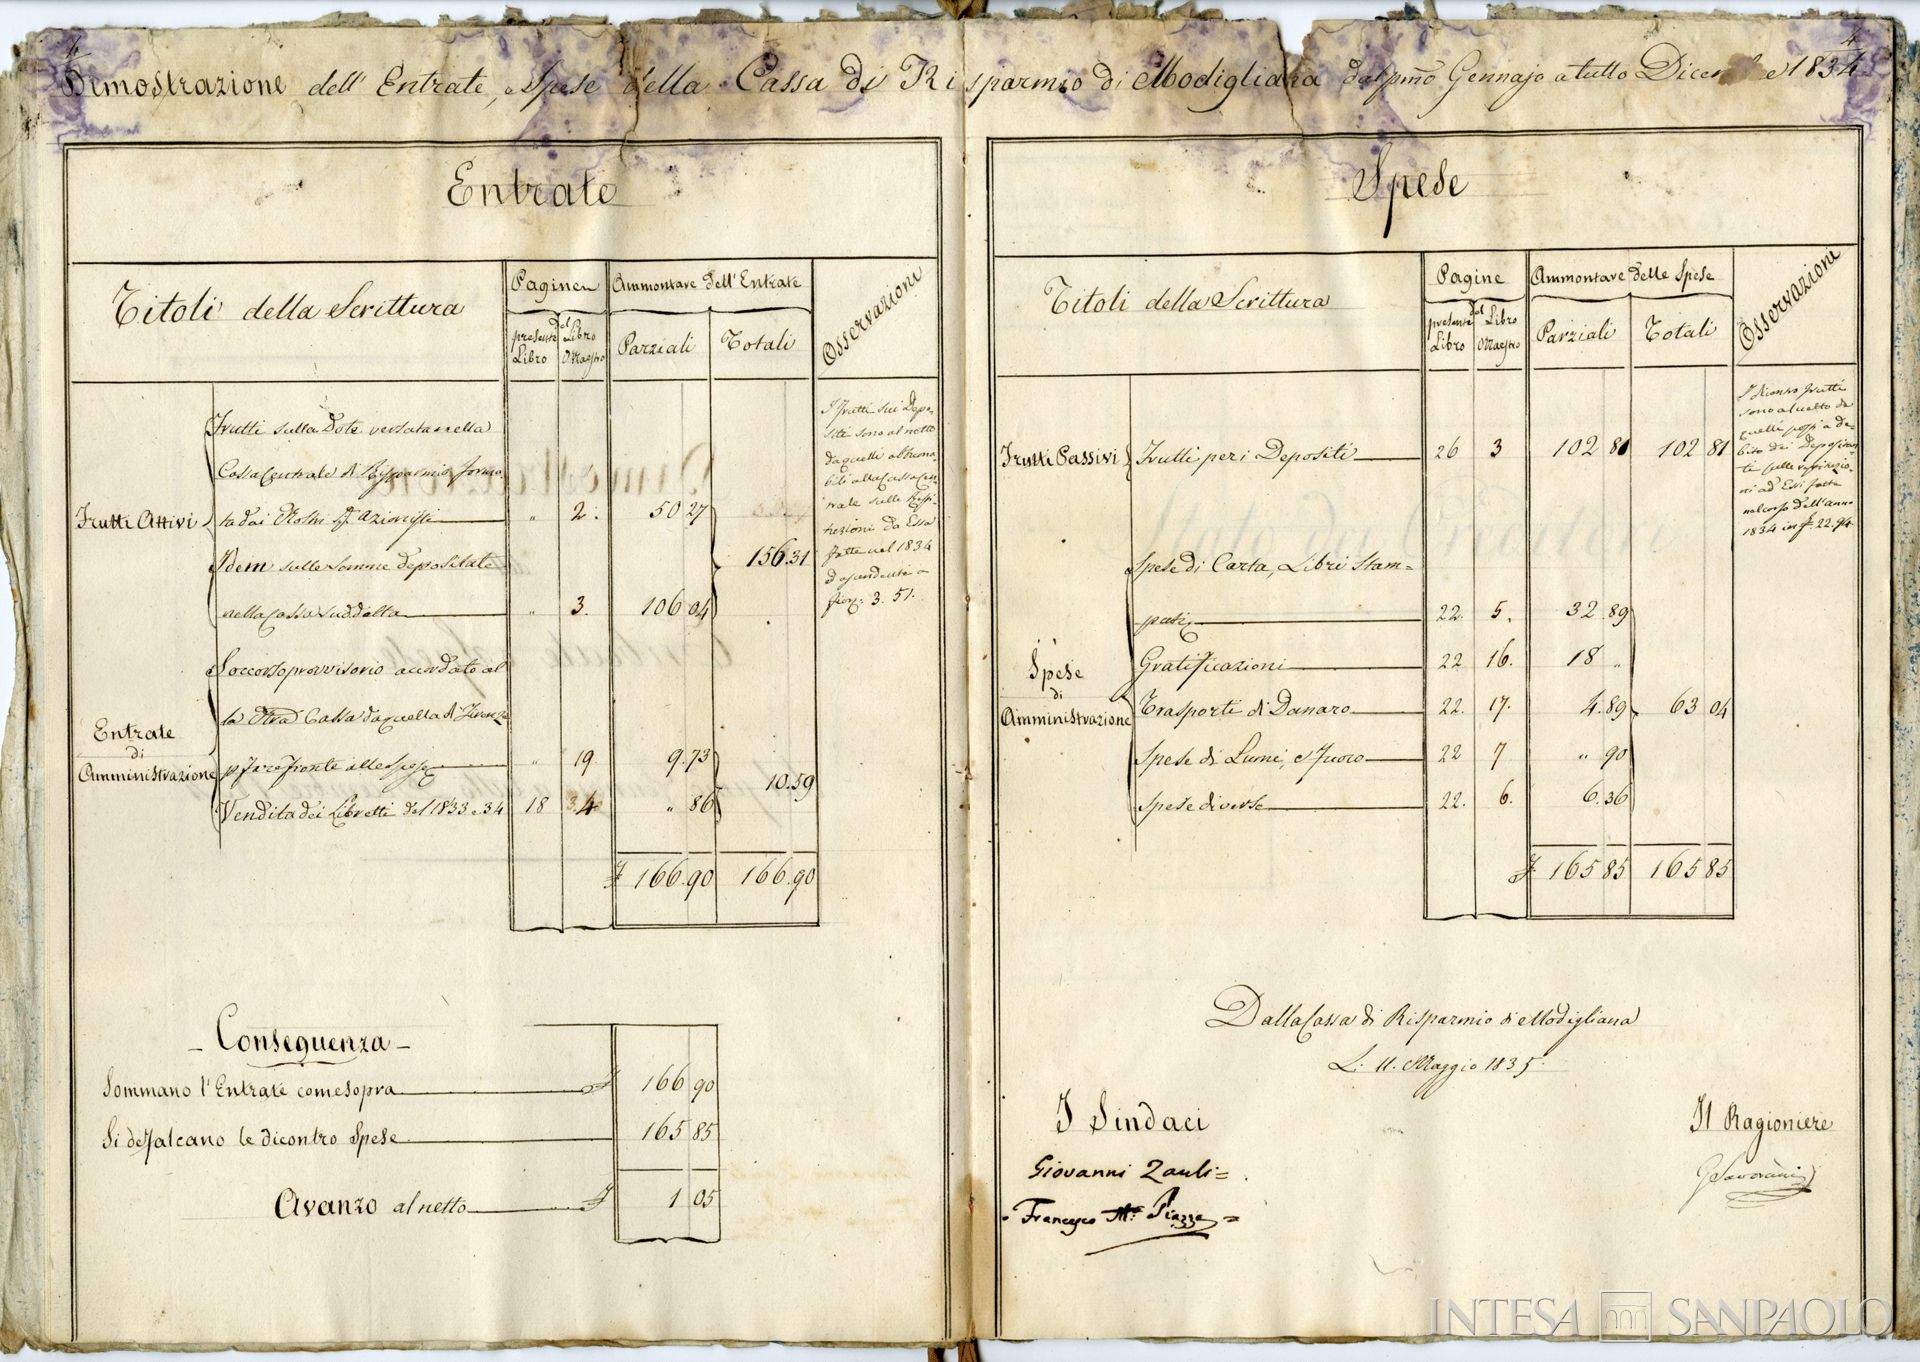 4
4
Dimostrazione dell' Entrate, e Spese della Cassa di Risparmio di Modigliana dal pmo Gennajo a tutto Dicembre 1834
Entrate
Titoli della Scrittura
Pagine
del
presente Libro
Libro Maestro
Ammontare dell'Entrate
Parziali
Totali
Osservazioni
Frutti Attivi
Frutti sulla Dote versata nella
Cassa Centrale di Risparmio forma-
ta dai Azionisti
" 2. 50 27
Idem sulle Somme depositate
156.31
nella Cassa suddetta " 3. 106 04
I Frutti sui Depo-
siti sono al netto
da quelli abbuona-
bili alla Cassa Cen-
trale sulle Resti-
tuzioni da Essa
fatte nel 1834
ascendenti a
3. 51.
Entrate
di
Amministrazione
Soccorso provvisorio accordato al
la Cassa da quella di Firenze
p. far fronte alle Spese " 19 9.73
10.59
Vendita dei Libretti del 1833 e 34 18 34 " 86
£ 166.90 166.90
- Conseguenza -
Sommano l'Entrate come sopra £ 166 90
Si defalcano le dicontro Spese 165 85
Avanzo al netto £ 1 05
Spese
Titoli della Scrittura
Pagine
del
presente Libro
Libro Maestro
Ammontare delle Spese
Parziali
Totali
Osservazioni
Frutti Passivi
Frutti per i Depositi 26 3 102 81 102 81
I dicontro frutti
sono al netto da
quelli passi a de-
bito dei Depositan-
ti pelle restituzio-
ni ad Essi fatte
nel corso dell'anno
1834 in £ 22.94
Spese
di
Amministrazione
Spese di Carta, Libri Stam=
pati 22. 5. 32.89
Gratificazioni 22 16. 18 "
Trasporti di Danaro 22. 17. 4.89 63 04
Spese di Lumi, e Fuoco 22 7 " 90
Spese diverse 22. 6. 6.36
£ 165 85 165 85
Dalla Cassa di Risparmio di Modigliana
Li 11. Maggio 1835.
I Sindaci
Giovanni Zauli =
Francesco Ma. Piazza =
Il Ragioniere
G Savorani
INTESA SANPAOLO